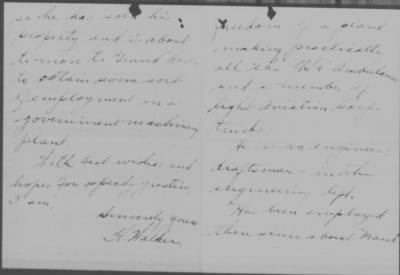 so he has sold his
property and is about
to move to Grand
to obtain some sort
of employment in a
government machinery
plant.
With best wishes and
hopes for speedy justice,
I am,
Sincerely yours
H. Walker.
freedom of a plant
making practically
all the Ambulance
and a number of
light aviation
trucks.
He is an engineer
draftsman in the
engineering dept.
Has been employed
there since about March